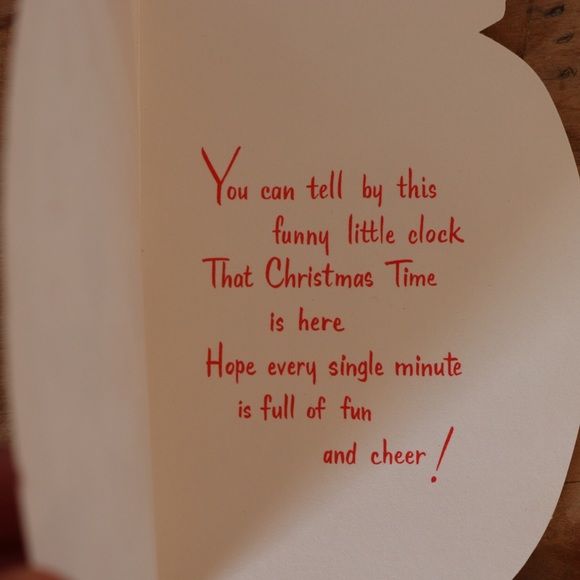 You can tell by this
funny little clock
That Christmas Time
is here
Hope every single minute
is full of fun
and cheer!